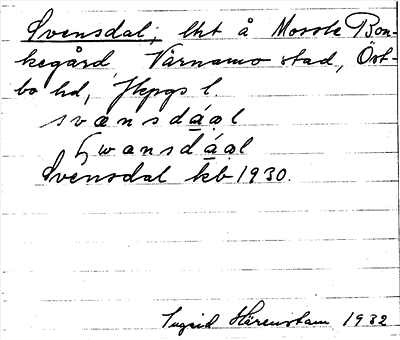 Svensdal, lht å Mossle Bon-
kegård, Värnamo stad, Öst-
bo hd, Jkpgs l
svænsdáal
wænsdáal
Svensdal kb 1930.
Ingrid Härenstam 1932